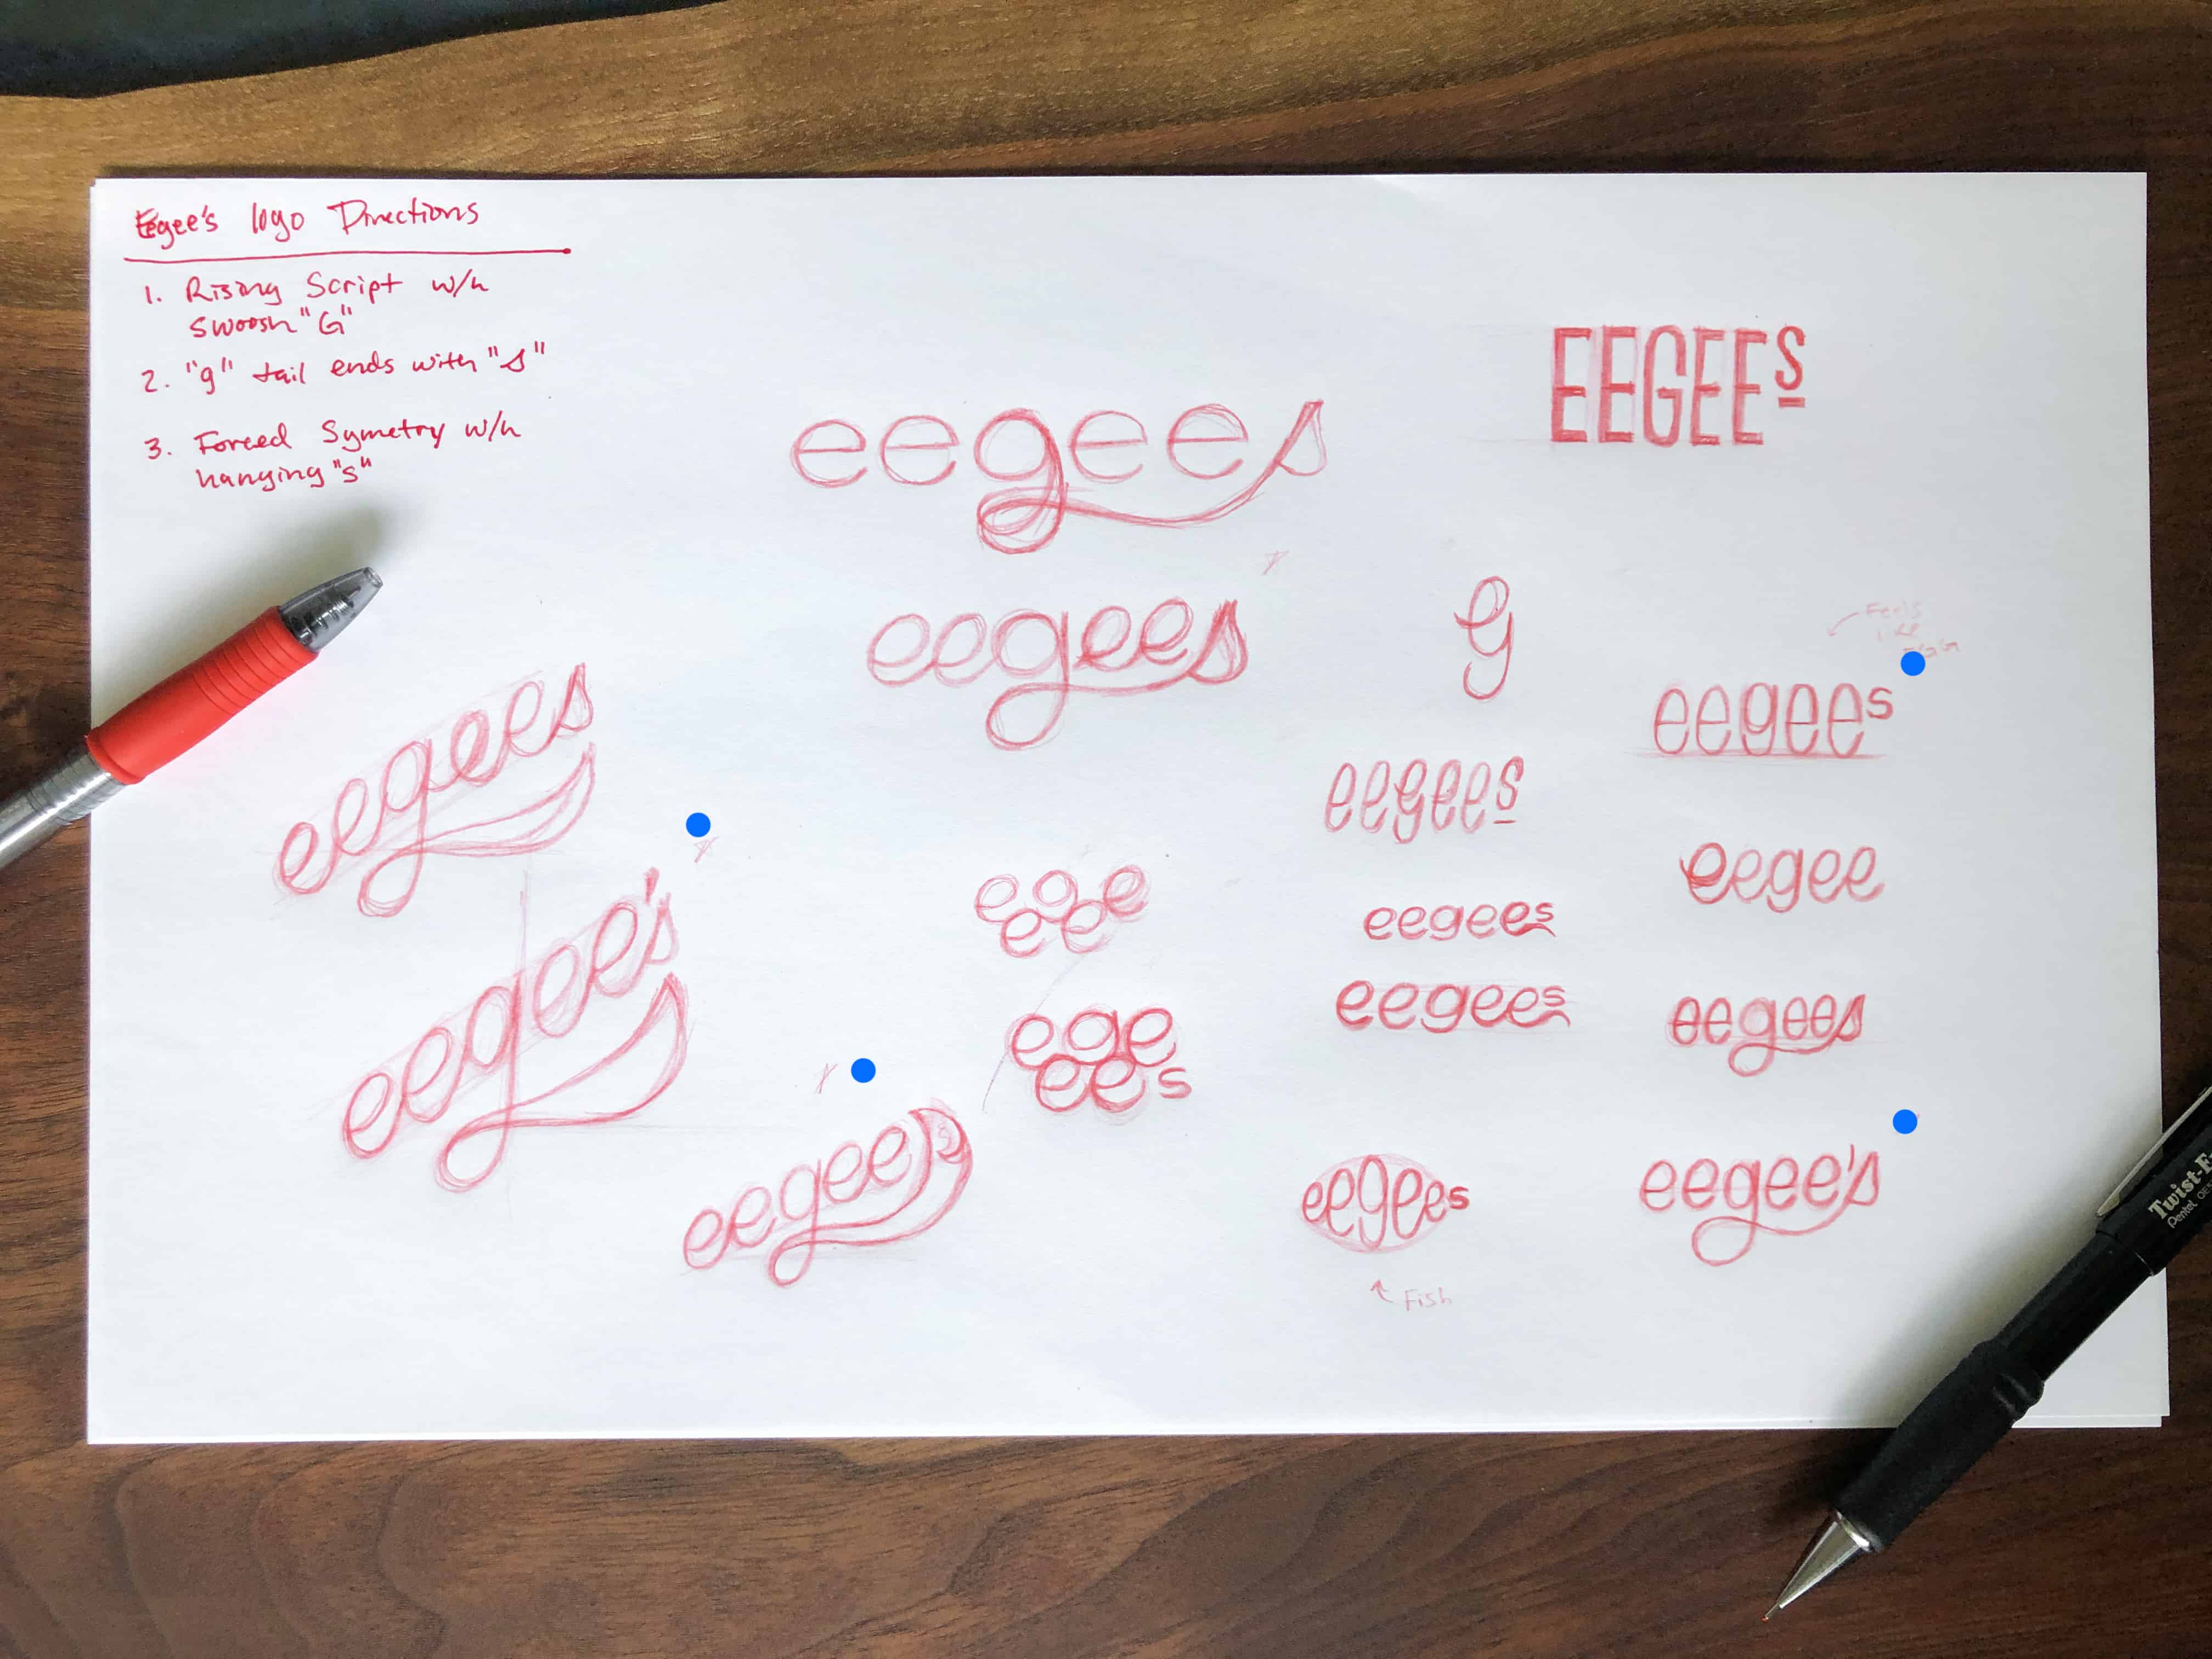 Eegee's logo Directions
1. Rising Script w/h
swoosh "G"
2. "g" tail ends with "s"
3. Forced Symetry w/h
hanging "s"
EEGEES
eegees
eegees
g
Feels
like
EGG
eegees
eegees
eegees
eegee
ege
ee
eegees
eegee's
eegees
eegees
ege
ees
eegees
eegees
eegee's
Fish
Twist-E
Pentel